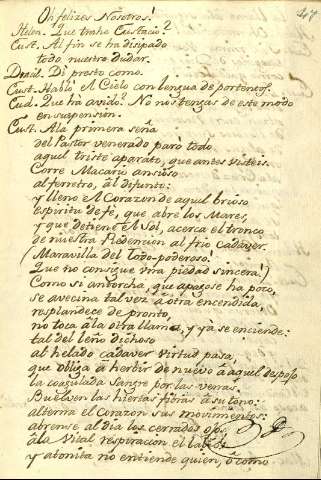 47
Oh felizes Nosotros!
Helen. Que trahe Eustacio?
Eust. Al fin se ha disipado
todo nuestro dudar.
Dracil. Di presto como.
Eust. Habló el Cielo con lengua de portentos.
Eud. Que ha avido? No nos tengas de este modo
en suspension.
Eust. Ala primera seña
del Pastor venerado paró todo
aquel triste aparato, que antes visteis.
Corre Macario ansioso
al ferretro, al difunto:
y lleno el Corazon de aquel brioso
espiritu de fè, que abre los Mares,
y que detiene el Sol, acerca el tronco
de nuestra Redencion al frio cadaver.
(Maravilla del Todo-poderoso!
Que no consigue una piedad sincera!)
Como si antorcha, que apagose ha poco,
se avecina tal vez à otra encendida,
resplandece de pronto,
no toca ala otra llama, y yà se enciende:
tal del leño dichoso
al helado cadaver virtud pasa,
que obliga à hervir de nuevo à aquel despojo
la coagulada Sangre por las venas.
Buelven las hiertas fibras à su tono:
alterna el corazon sus movimientos:
abrense al dia los cerrados ojos,
ala vital respiracion el labio:
y atomita no entiende quien, ò como